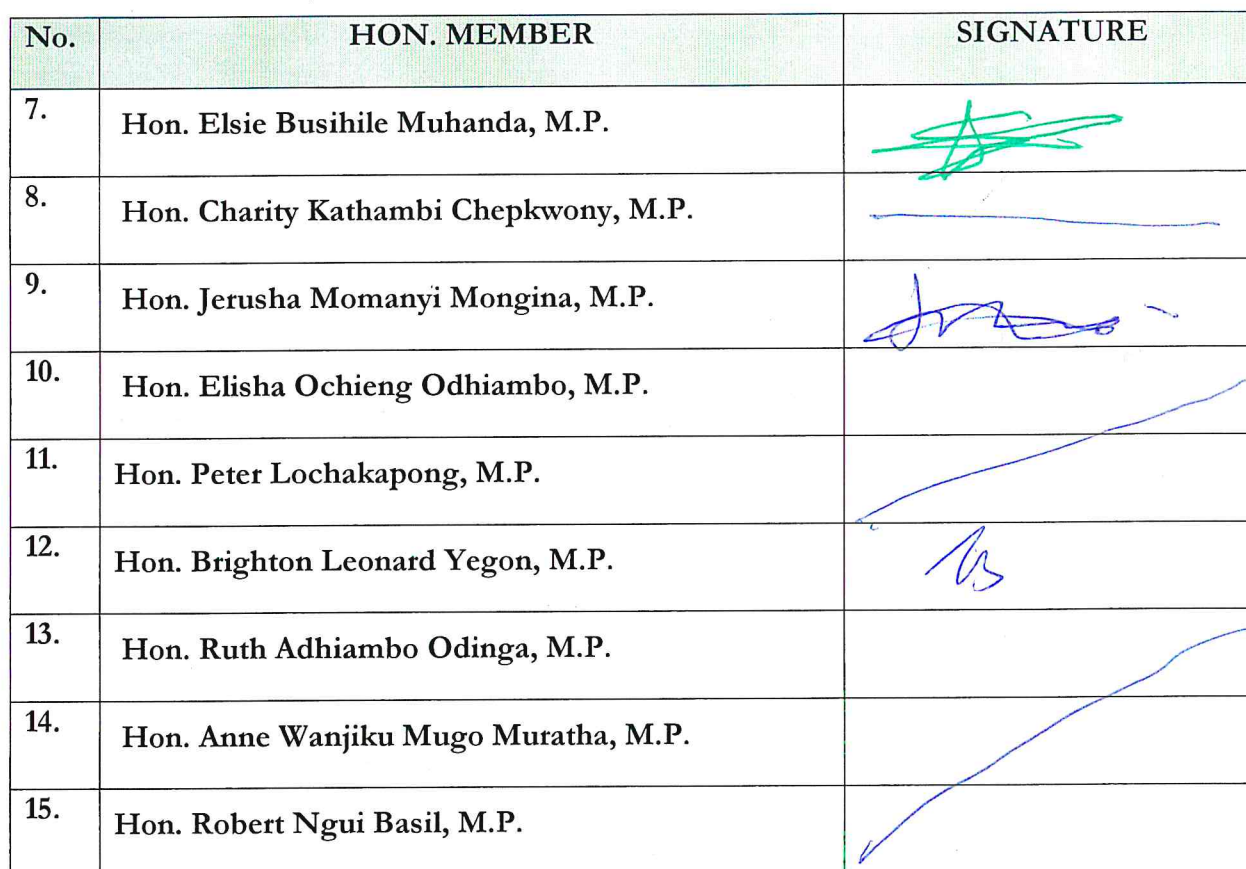 No. HON. MEMBER SIGNATURE
7. Hon. Elsie Busihile Muhanda, M.P.
8. Hon. Charity Kathambi Chepkwony, M.P.
9. Hon. Jerusha Momanyi Mongina, M.P.
10. Hon. Elisha Ochieng Odhiambo, M.P.
11. Hon. Peter Lochakapong, M.P.
12. Hon. Brighton Leonard Yegon, M.P.
13. Hon. Ruth Adhiambo Odinga, M.P.
14. Hon. Anne Wanjiku Mugo Muratha, M.P.
15. Hon. Robert Ngui Basil, M.P.